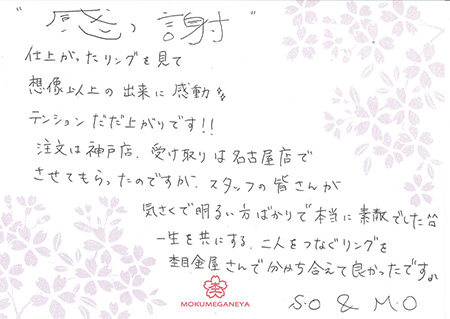 "感謝"
仕上がったリングを見て
想像以上の出来に感動
テンションだだ上がりです!!
注文は神戸店、受け取りは名古屋店で
させてもらったのですが、スタッフの皆さんが
気さくで明るい方ばかりで本当に素敵でした^^
一生を共にする、二人をつなぐリングを
杢目金屋さんで分かち合えて良かったです。
MOKUMEGANEYA
S.O & M.O